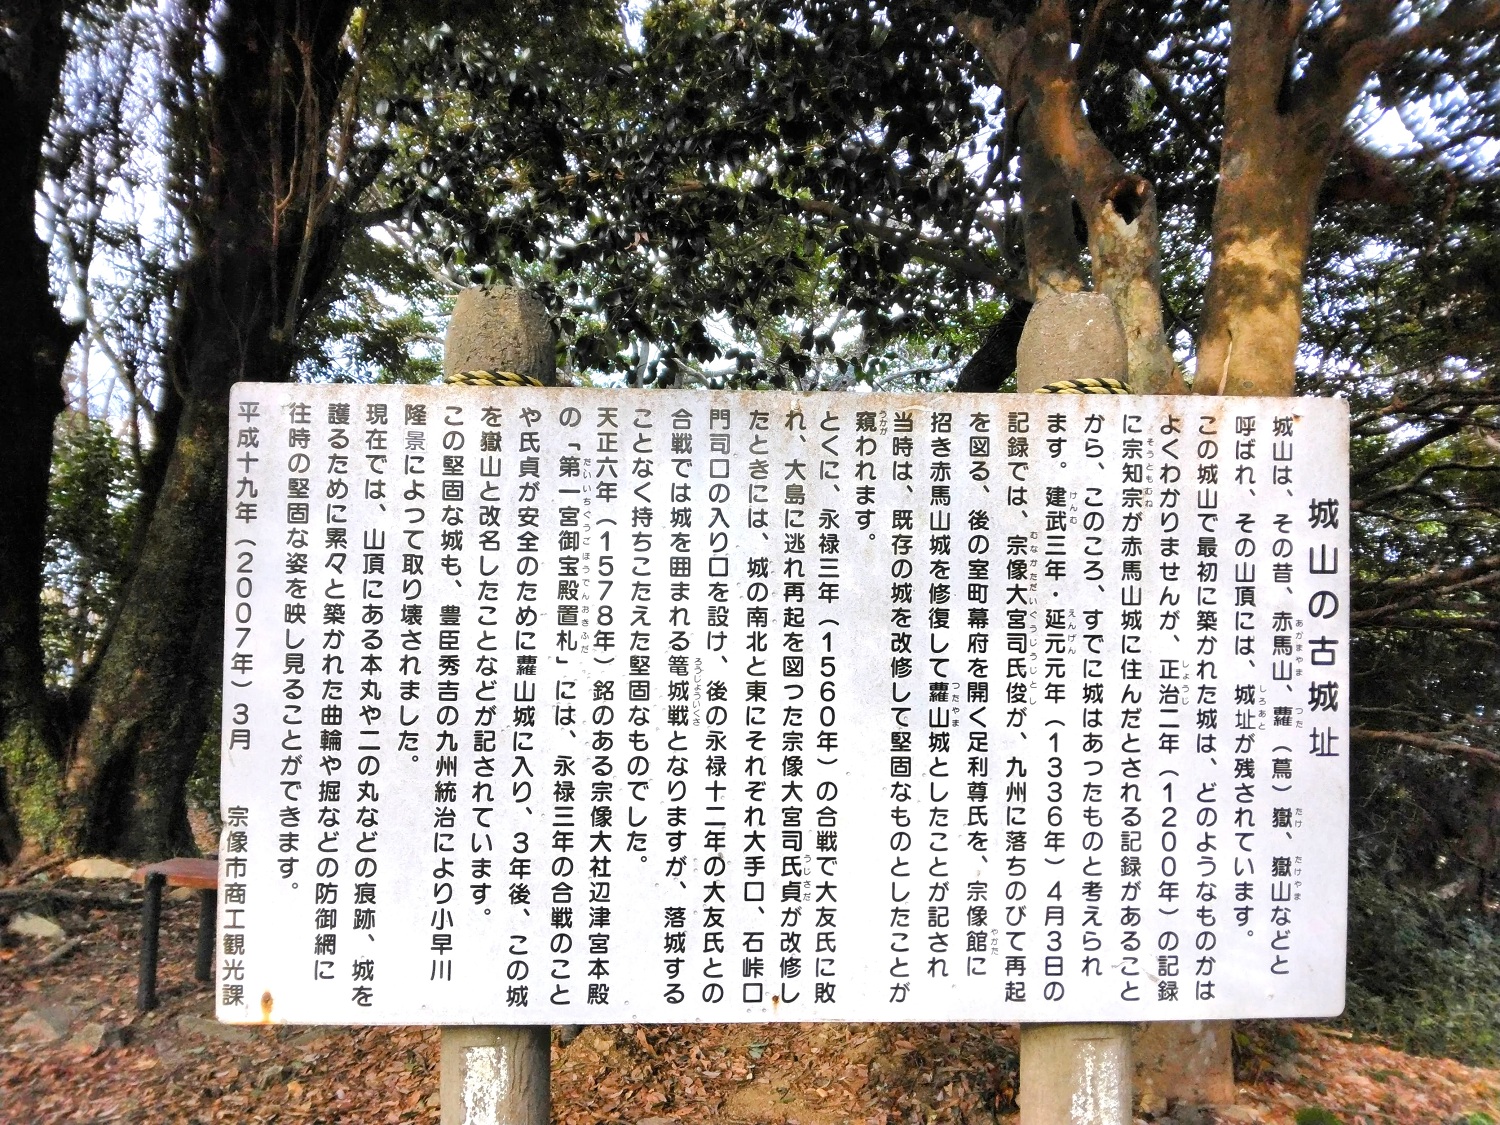 城山の古城址
城山は、その昔、赤馬山、蘿（蔦）嶽、嶽山などと
呼ばれ、その山頂には、城址が残されています。
この城山で最初に築かれた城は、どのようなものかは
よくわかりませんが、正治二年（1200年）の記録
に宗知宗が赤馬山城に住んだとされる記録があること
から、このころ、すでに城はあったものと考えられ
ます。建武三年・延元元年（1336年）4月3日の
記録では、宗像大宮司氏俊が、九州に落ちのびて再起
を図る、後の室町幕府を開く足利尊氏を、宗像館に
招き赤馬山城を修復して蘿山城としたことが記され
当時は、既存の城を改修して堅固なものとしたことが
窺われます。
とくに、永禄三年（1560年）の合戦で大友氏に敗
れ、大島に逃れ再起を図った宗像大宮司氏貞が改修し
たときには、城の南北と東にそれぞれ大手口、石峠口
門司口の入り口を設け、後の永禄十二年の大友氏との
合戦では城を囲まれる篭城戦となりますが、落城する
ことなく持ちこたえた堅固なものでした。
天正六年（1578年）銘のある宗像大社辺津宮本殿
の「第一宮御宝殿置札」には、永禄三年の合戦のこと
や氏貞が安全のために蘿山城に入り、3年後、この城
を嶽山と改名したことなどが記されています。
この堅固な城も、豊臣秀吉の九州統治により小早川
隆景によって取り壊されました。
現在では、山頂にある本丸や二の丸などの痕跡、城を
護るために累々と築かれた曲輪や掘などの防御網に
往時の堅固な姿を映し見ることができます。
平成十九年（2007年）3月　宗像市商工観光課